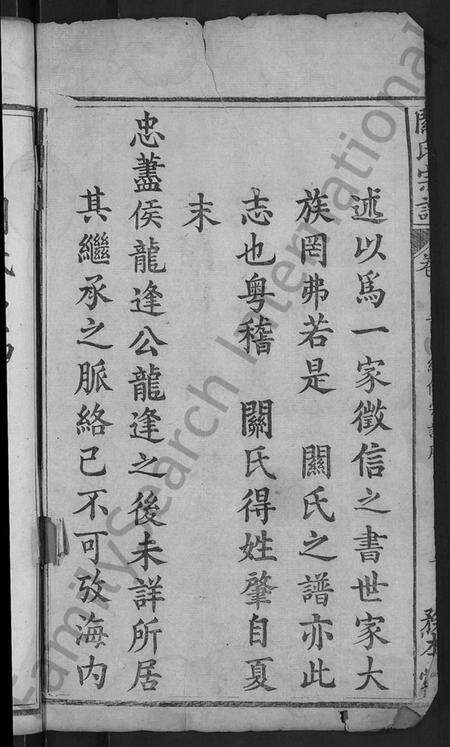 關氏宗譜
卷
述以爲一家徵信之書世家大
族罔弗若是　關氏之譜亦此
志也粤稽　關氏得姓肇自夏
末
忠藎侯龍逢公龍逢之後未詳所居
其繼承之脈絡已不可攷海內
FamilySearch International